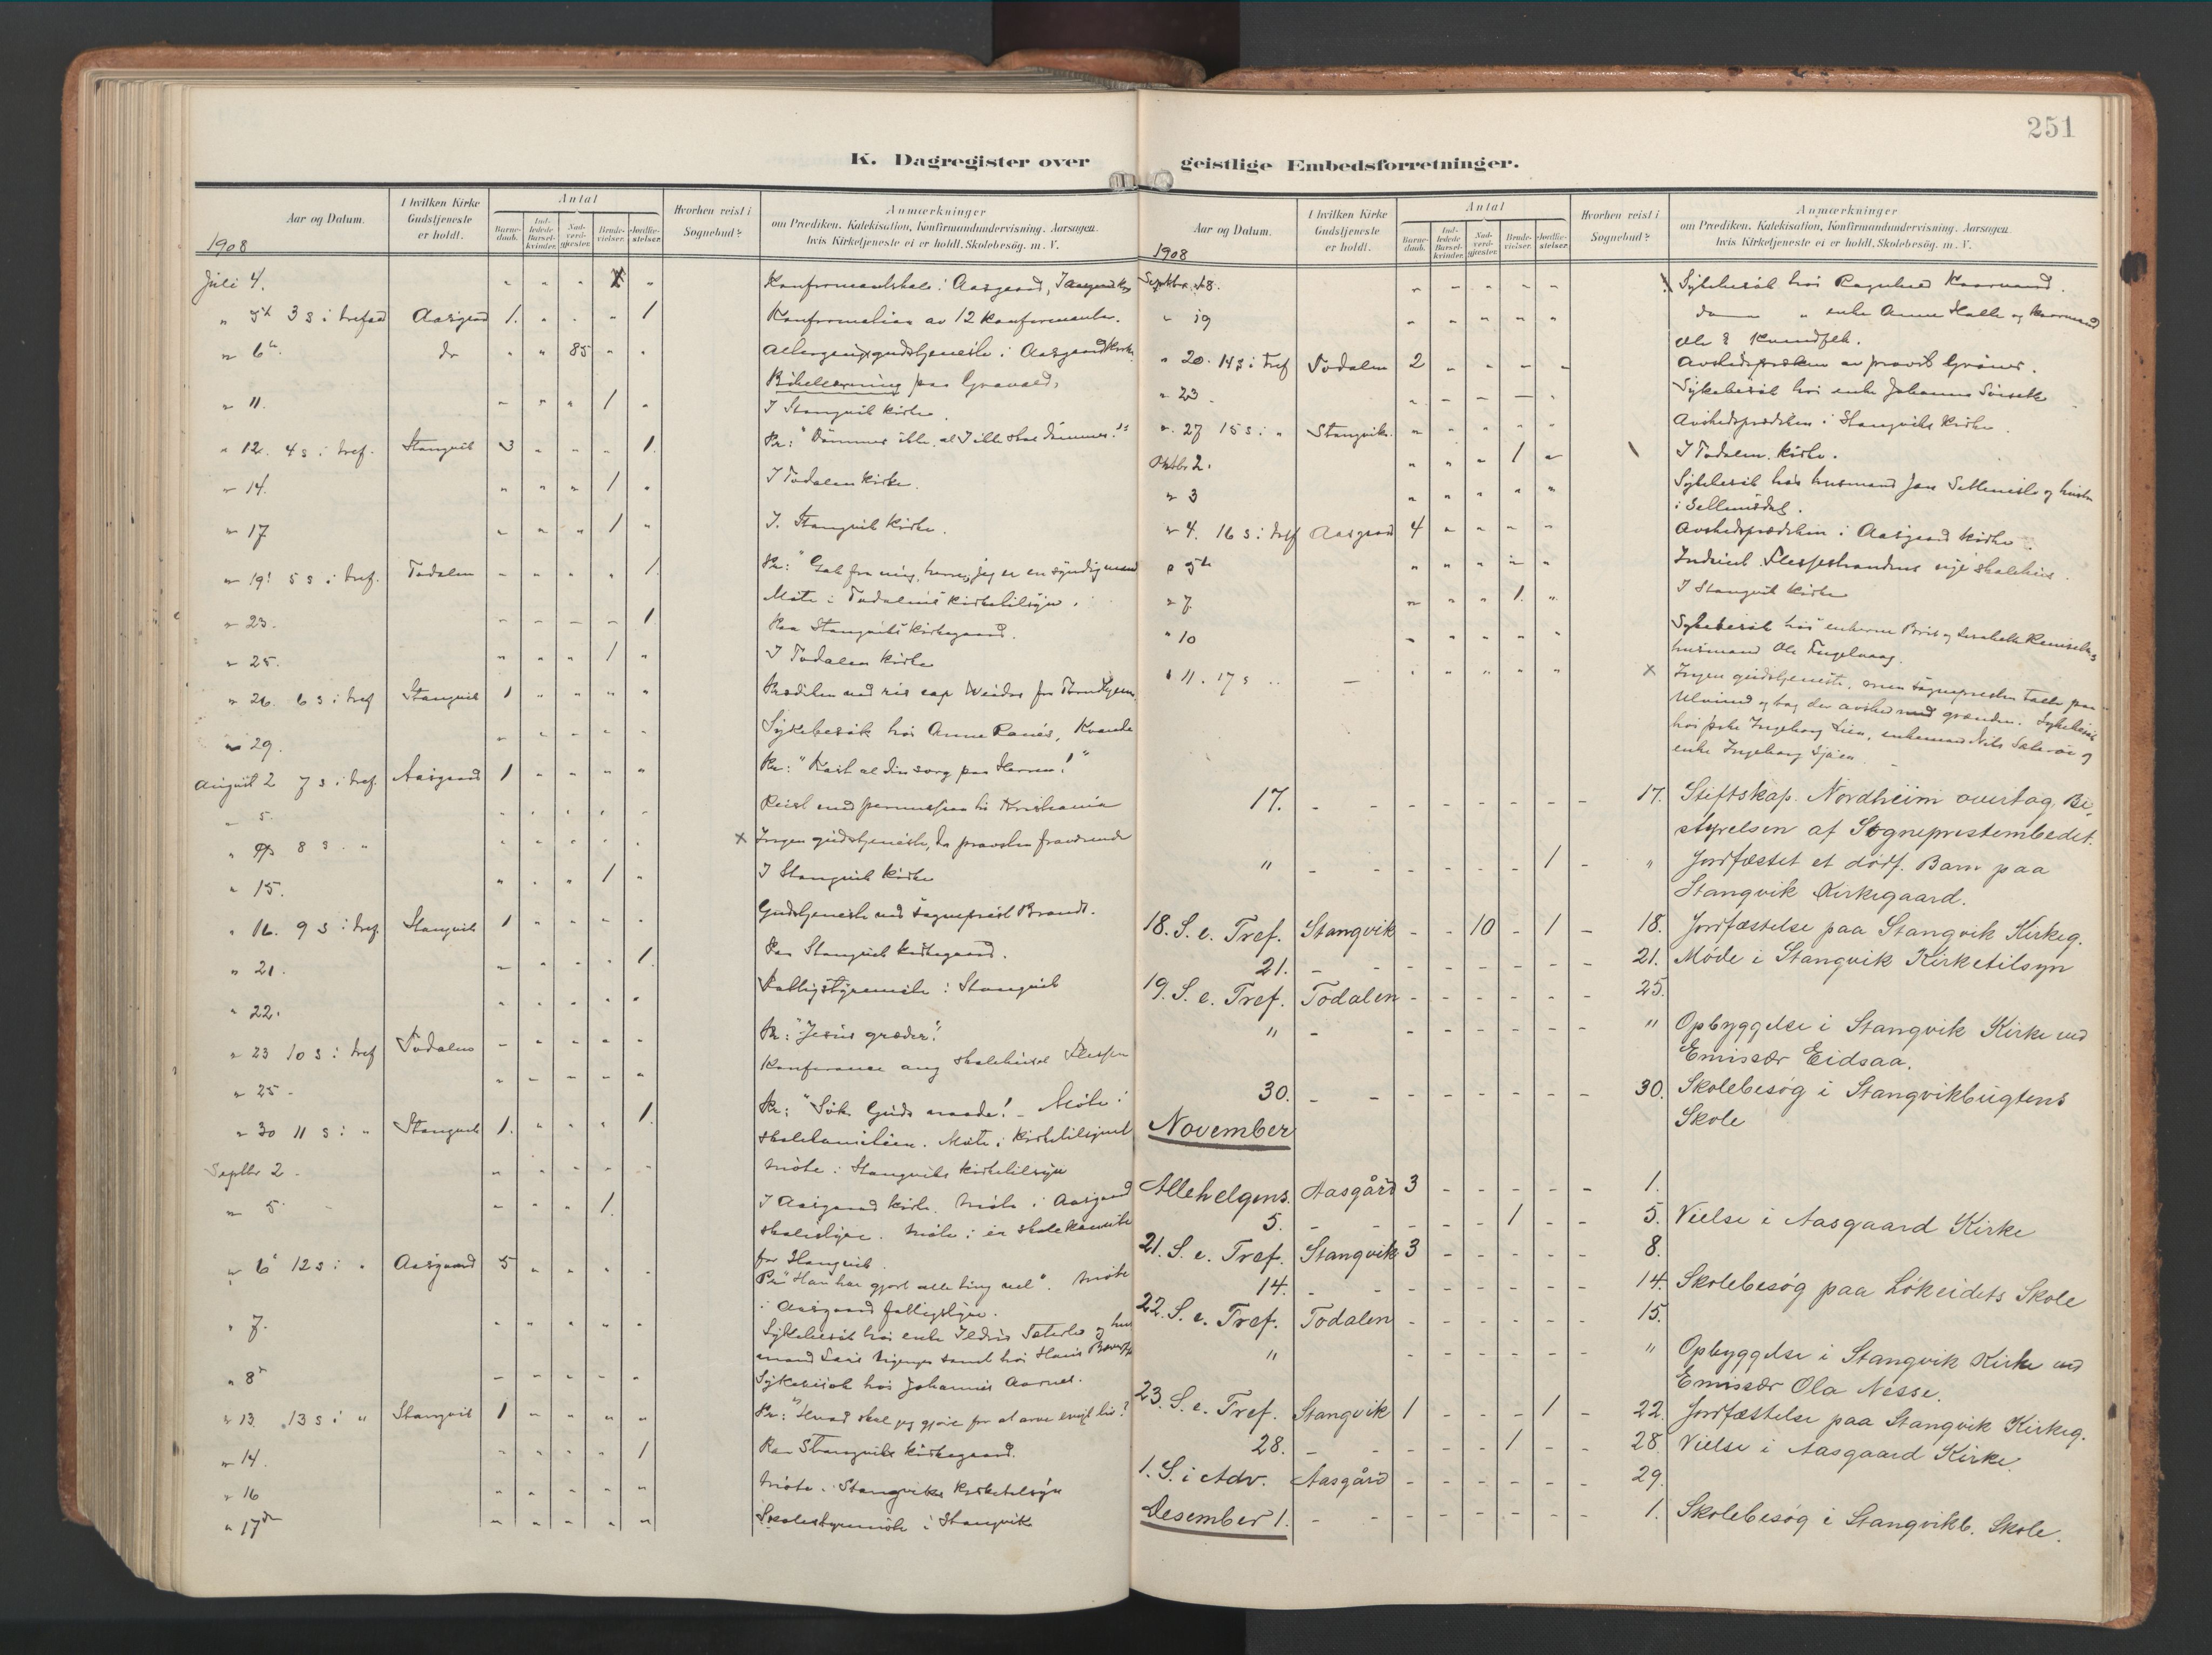 251
K. Dagregister over geistlige Embedsforretninger.
Aar og Datum.
I hvilken Kirke Gudstjeneste er holdt.
Antal
Barnedaab.
Indledede Barselkvinder.
Nadverdgjæster.
Brudevielser.
Jordfæstelser.
Hvorhen reist i Sognebud?
Anmærkninger
om Prædiken, Katekisation, Konfirmandundervisning. Aarsagen
hvis Kirketjeneste ei er holdt. Skolebesøg. m. V.
1908
Juli 4. " " " "
" 5 3 s i trefold Aasgaard 1. " " " 1 Konfirmation av 12 konfirmanter.
" 6 do " " 85 " " Altergangsgudstjeneste i Aasgaard kirke.
" 11. " " " 1 " I Stangvik kirke.
" 12. 4 s i tref. Stangvik 3 " " " 1. Pr: "Dømmer ikke, at I ikke skal dømmes!"
" 14. " " " 1 " I Todalen kirke.
" 17 " " " 1 " I. Stangvik kirke.
" 19. 5 s i tref. Todalen " " " " 1. Pr: "Gak fra mig, herre, jeg er en syndig mand
Møte i Todalens kirketilsyn.
" 23. " " " " 1 Paa Stangviks kirkegaard.
" 25. " " " 1 " I Todalen kirke
" 26. 6 s i tref Stangvik 1 " " " "
" 29. " " " " Sykebesøk hos Anne Ranes, Kvande
August 2 7 s i tref. Aasgaard 1 " " " " Pr: "Kast al din sorg paa Herren!"
" 5. " " " " " Reist med permission til Kristiania
" 9 8 s. " " " " " " x Ingen gudstjeneste, da provsten fraværende
" 15. " " " 1 " I Stangvik kirke
" 16. 9 s i tref Stangvik 1 " " " " Gudstjeneste ved sogneprest Brandt.
" 21. " " " " 1. Paa Stangvik kirkegaard.
" 22. " " " " Fattigstyremøte i Stangvik
" 23 10 s i tref Todalen " " " " " Pr: "Jesus græder."
" 25 " " " " Konferance ang skolehuset
" 30 11 s i " Stangvik 1. " " " 1. Pr: "Søk Guds naade! - Møte i
skolekomiteen. Møte i kirketilsynet
Septbr 2. " " " " " Møte i Stangviks kirketilsyn
" 5. " " " 1. I Aasgaard kirke. Møte i Aasgaard
skolestyre. Møte i en skolekomite
for Stangvik.
" 6 12 s i " Aasgaard 5 " " " " Pr "Han har gjort alle ting vel". Møte
i Aasgaard fattigstyre.
" 7. " " " " "
" 8 " " " " " Sykebesøk hos Johannes Aarnes.
" 13. 13 s i " Stangvik 1 " " " " Pr: "Hvad skal jeg gjøre for at arve evigt liv?
" 14. " " " " 1 Paa Stangviks kirkegaard.
" 16 " " " " " Møte i Stangviks kirketilsyn
" 17 " " " " " Skolestyremøte i Stangvik
Aar og Datum.
I hvilken Kirke Gudstjeneste er holdt.
Antal
Barnedaab.
Indledede Barselkvinder.
Nadverdgjæster.
Brudevielser.
Jordfæstelser.
Hvorhen reist i Sognebud?
Anmærkninger
om Prædiken, Katekisation, Konfirmandundervisning. Aarsagen
hvis Kirketjeneste ei er holdt. Skolebesøg. m. V.
1908
Septbr. 18. " " " " " Sykebesøk hos
" 19 " " " " "
" 20. 14 s i tref Todalen 2 " " " " Avskedsprædiken av provst Grøner.
" 23. " " " " " Sykebesøk hos enke Johanne
" 27 15 s i " Stangvik. " " " " " Avskedsprædiken i Stangviks kirke.
Oktbr 2. " " " 1 " I Todalen kirke.
" 3 " " " " " Sykebesøk hos husmand
" 4. 16 s i tref Aasgaard 4 " " " " Avskedsprædiken i Aasgaard kirke.
" 5 " " " " " skolehus.
" 7. " " " 1. " I Stangvik kirke
" 10 " " " " " Sykebesøk hos enkerne
husmand Ole
" 11. 17 s " — " " " " " x Ingen gudstjeneste, men sognepresten talte paa
og tog der avsked med grenden. Sykebesøk
enke Ingeborg
17. - - - - - - - 17. Stiftskap. Nordheim overtog Be-
styrelsen af Sogneprestembedet.
" - - - - - 1 - " Jordfæstet et dødf. Barn paa
Stangvik Kirkegaard.
18. S. e. Tref. Stangvik - - 10 - 1 - 18. Jordfæstelse paa Stangvik Kirkeg.
21. - - - - - - - 21. Møde i Stangvik Kirketilsyn
19. S. e. Tref. Todalen - - - - - - 25.
" - - - - - - - " Opbyggelse i Stangvik Kirke ved
Emissær Eidsaa.
30. - - - - - - - 30. Skolebesøg i Stangvikbugtens
Skole
November
Allehelgens. Aasgård 3 - - - - - 1.
5. - - - - 1 - - 5. Vielse i Aasgaard Kirke
21. S. e. Tref. Stangvik 3 - - - - - 8.
14. - - - - - - - 14. Skolebesøg paa Løkeidets Skole
22. S. e. Tref. Todalen - - - - - - 15.
" - - - - - - " Opbyggelse i Stangvik Kirke ved
Emissær Ola Nesse.
23. S. e. Tref. Stangvik 1 - - - 1 - 22. Jordfæstelse paa Stangvik Kirkeg.
28. - - - - 1 - - 28. Vielse i Aasgaard Kirke.
1. S. i Adv. Aasgård - - - - - - 29.
Desember 1. - - - - - - - 1. Skolebesøg i Stangvikb. Skole.